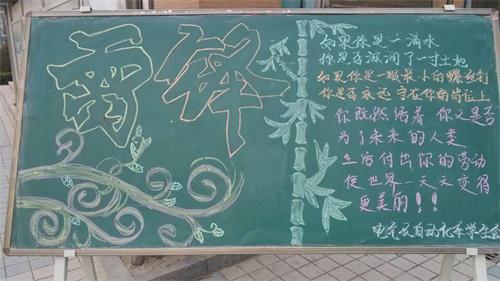 雷锋
如果你是一滴水
你是否滋润了一寸土地
如果你是一颗最小的螺丝钉
你是否永远守在你的岗位上
你既然活着 你又是否
为了未来的人类
生活付出你的劳动
使世界一天天变得
更美丽!!
电气及自动化系学生会